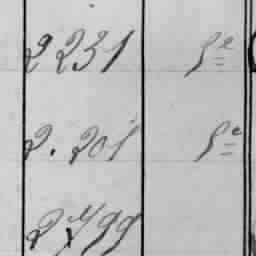 2231 5e
2.201 5e
2799